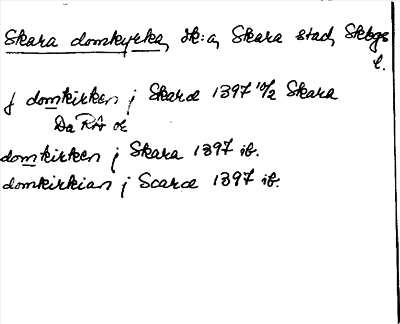 Skara domkyrka, sk:a, Skara stad, Skbgs
l.
J domkirken j Skaræ 1397 10/2 Skara
Da RA or
domkirken j Skara 1397 ib.
domkirkian j Scaræ 1397 ib.